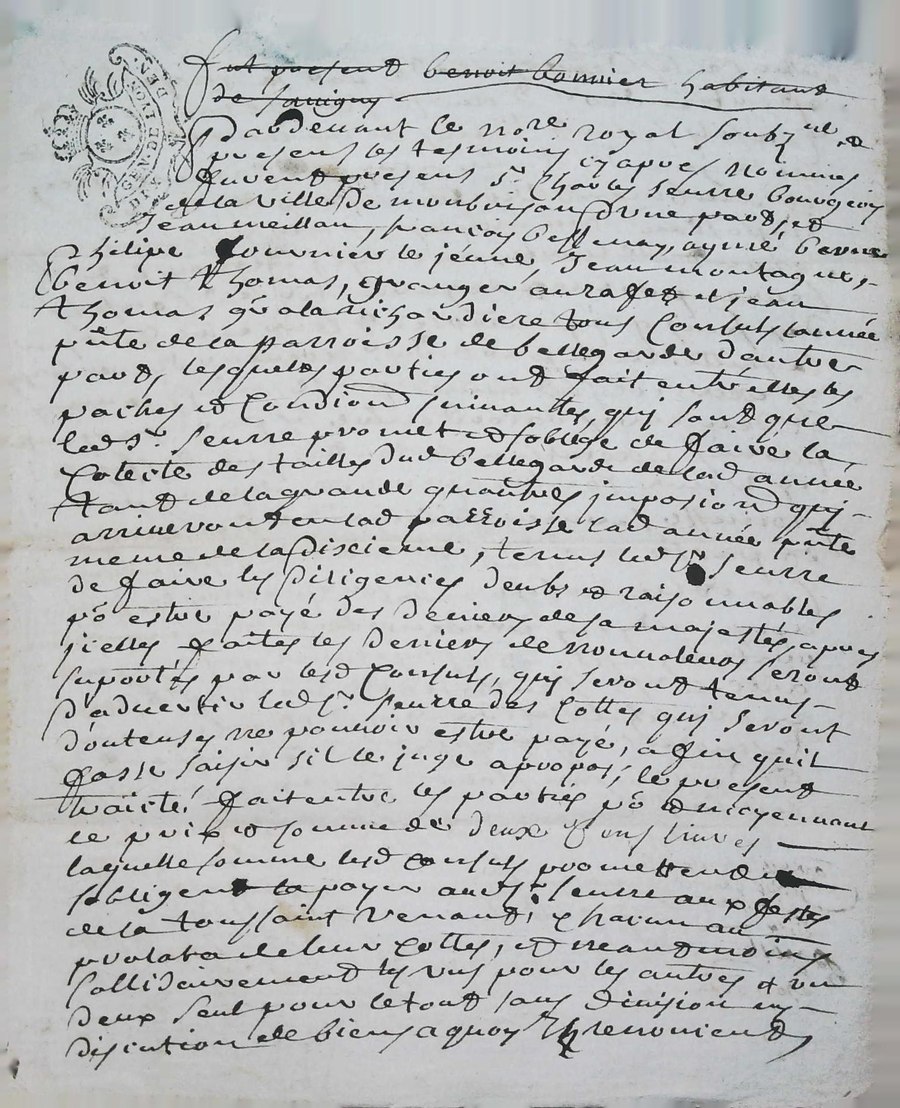 fut present benoit bonnier habitant
de savigny
Pardevant le no.re royal soubz.né &
presents les tesmoins cy apres nommes
furent presens s.r Charles seurre bourgeois
de la ville de montbrison d'une part, et
Jean meillan, francois bessenay, aymé
philipe fournier le jeune, Jean montagne,
benoit thomas, granger au et jean
thomas gr a la richardiere tous Consuls lannée
pn̄te de la parroisse de bellegarde d'autre
part, lesquelles parties ont fait entr'elles les
paches et Condions suivantes, qui sont que
led s.r seurre promet et soblige de faire la
Colecte des tailles dud bellegarde de lad année
tant de la grande qu'autres imposions qui
arriveront en lad parroisse lad année pn̄te
meme de la discieme, tenus led s.r seurre
de faire les diligences deubs et raisonnables
p.o estre payé des deniers de sa majesté, apres
jcelles faites les deniers de nonvaleurs seront
suportés par lesd Consuls, qui seront tenus
d'advertir led s.r seurre des Cottes qui seront
douteuses ne pouvoir estre payé, afin quil
fasse saisir sil le juge apropos, le present
traicté fait entre les parties p.o et moyennant
le prix et somme de deux livres
laquelle somme lesd Consuls promettent
sobligent la payer aud s.r seurre aux festes
de la toussaint venant, chacun au
prolata de leur Cottes, et neantmoins
sollidairement les uns pour les autres et un
deux seul pour le tout sans division ny
discution de biens a quoy ils renoncient